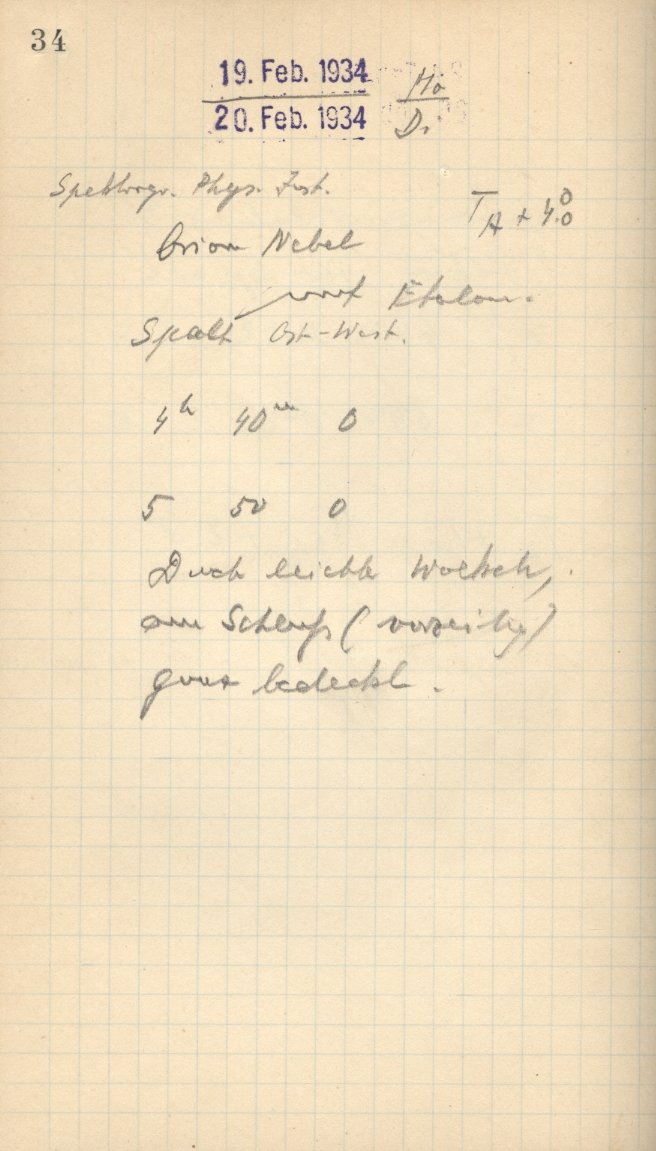 34
19. Feb. 1934 Mo
20. Feb. 1934 Di
Spektrogr. Phys. Inst.
T_A + 4.°0
Orion Nebel
Etalon.
Spalt Ost-West.
4h 40m 0
5 50 0
Durch leichte Wolken,
am Schluss (vorzeitig)
ganz bedeckt.